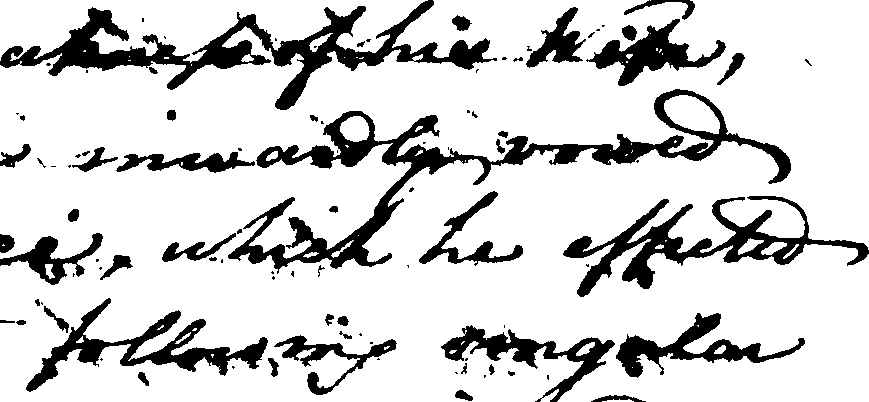 of his Wife,
inwardly vowed
which he effected
following singular